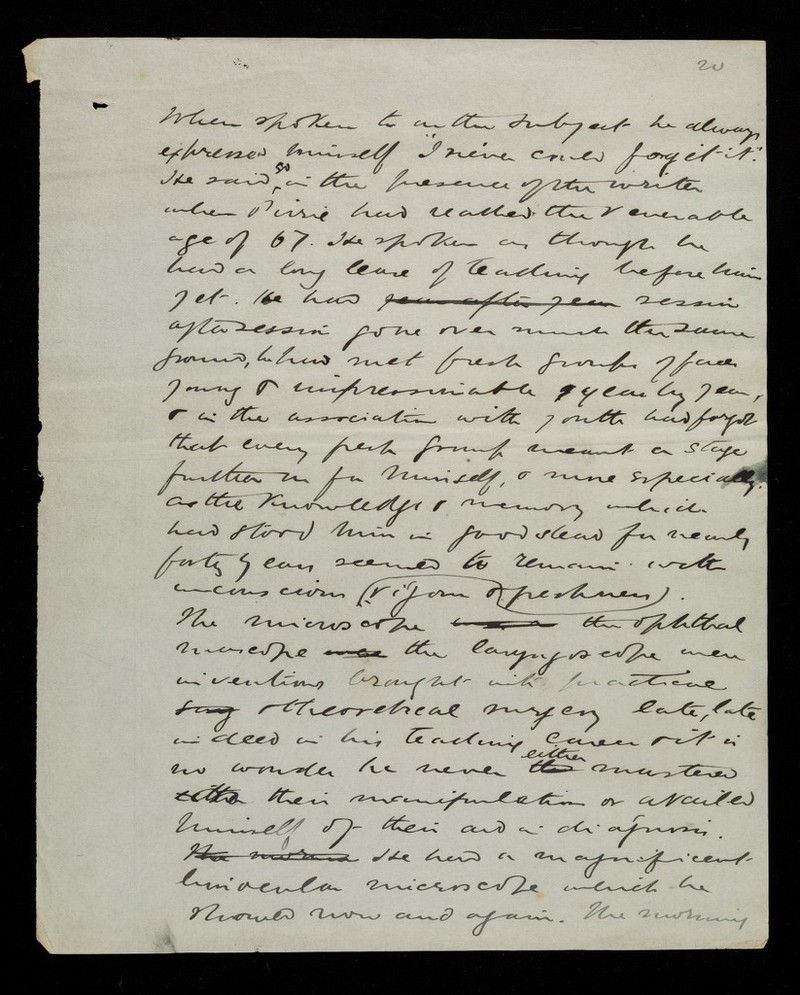 20
When spoken to on the subject he always
expressed himself "I never could forget it".
He said so, in the presence of the writer
when Pirrie had reached the venerable
age of 67. He spoke as though he
had a long lease of teaching before him
yet. He had year after year session
after session gone over much the same
ground, he had met fresh groups of faces
young & impressionable year by year,
& in the association with youth had forgot
that every fresh group meant a stage
further on for himself, & more especially
as the knowledge & memory which
had stood him in good stead for nearly
forty years seemed to remain with
unconscious (vigour & freshness).
The microscope the ophthal
moscope the laryngoscope were
inventions brought into practical
& theoretical surgery late, late
indeed in his teaching career & it is
no wonder he never either mastered
their manipulation or availed
himself of their aid in diagnosis.
He had a magnificent
binocular microscope which he
showed now and again. The morning